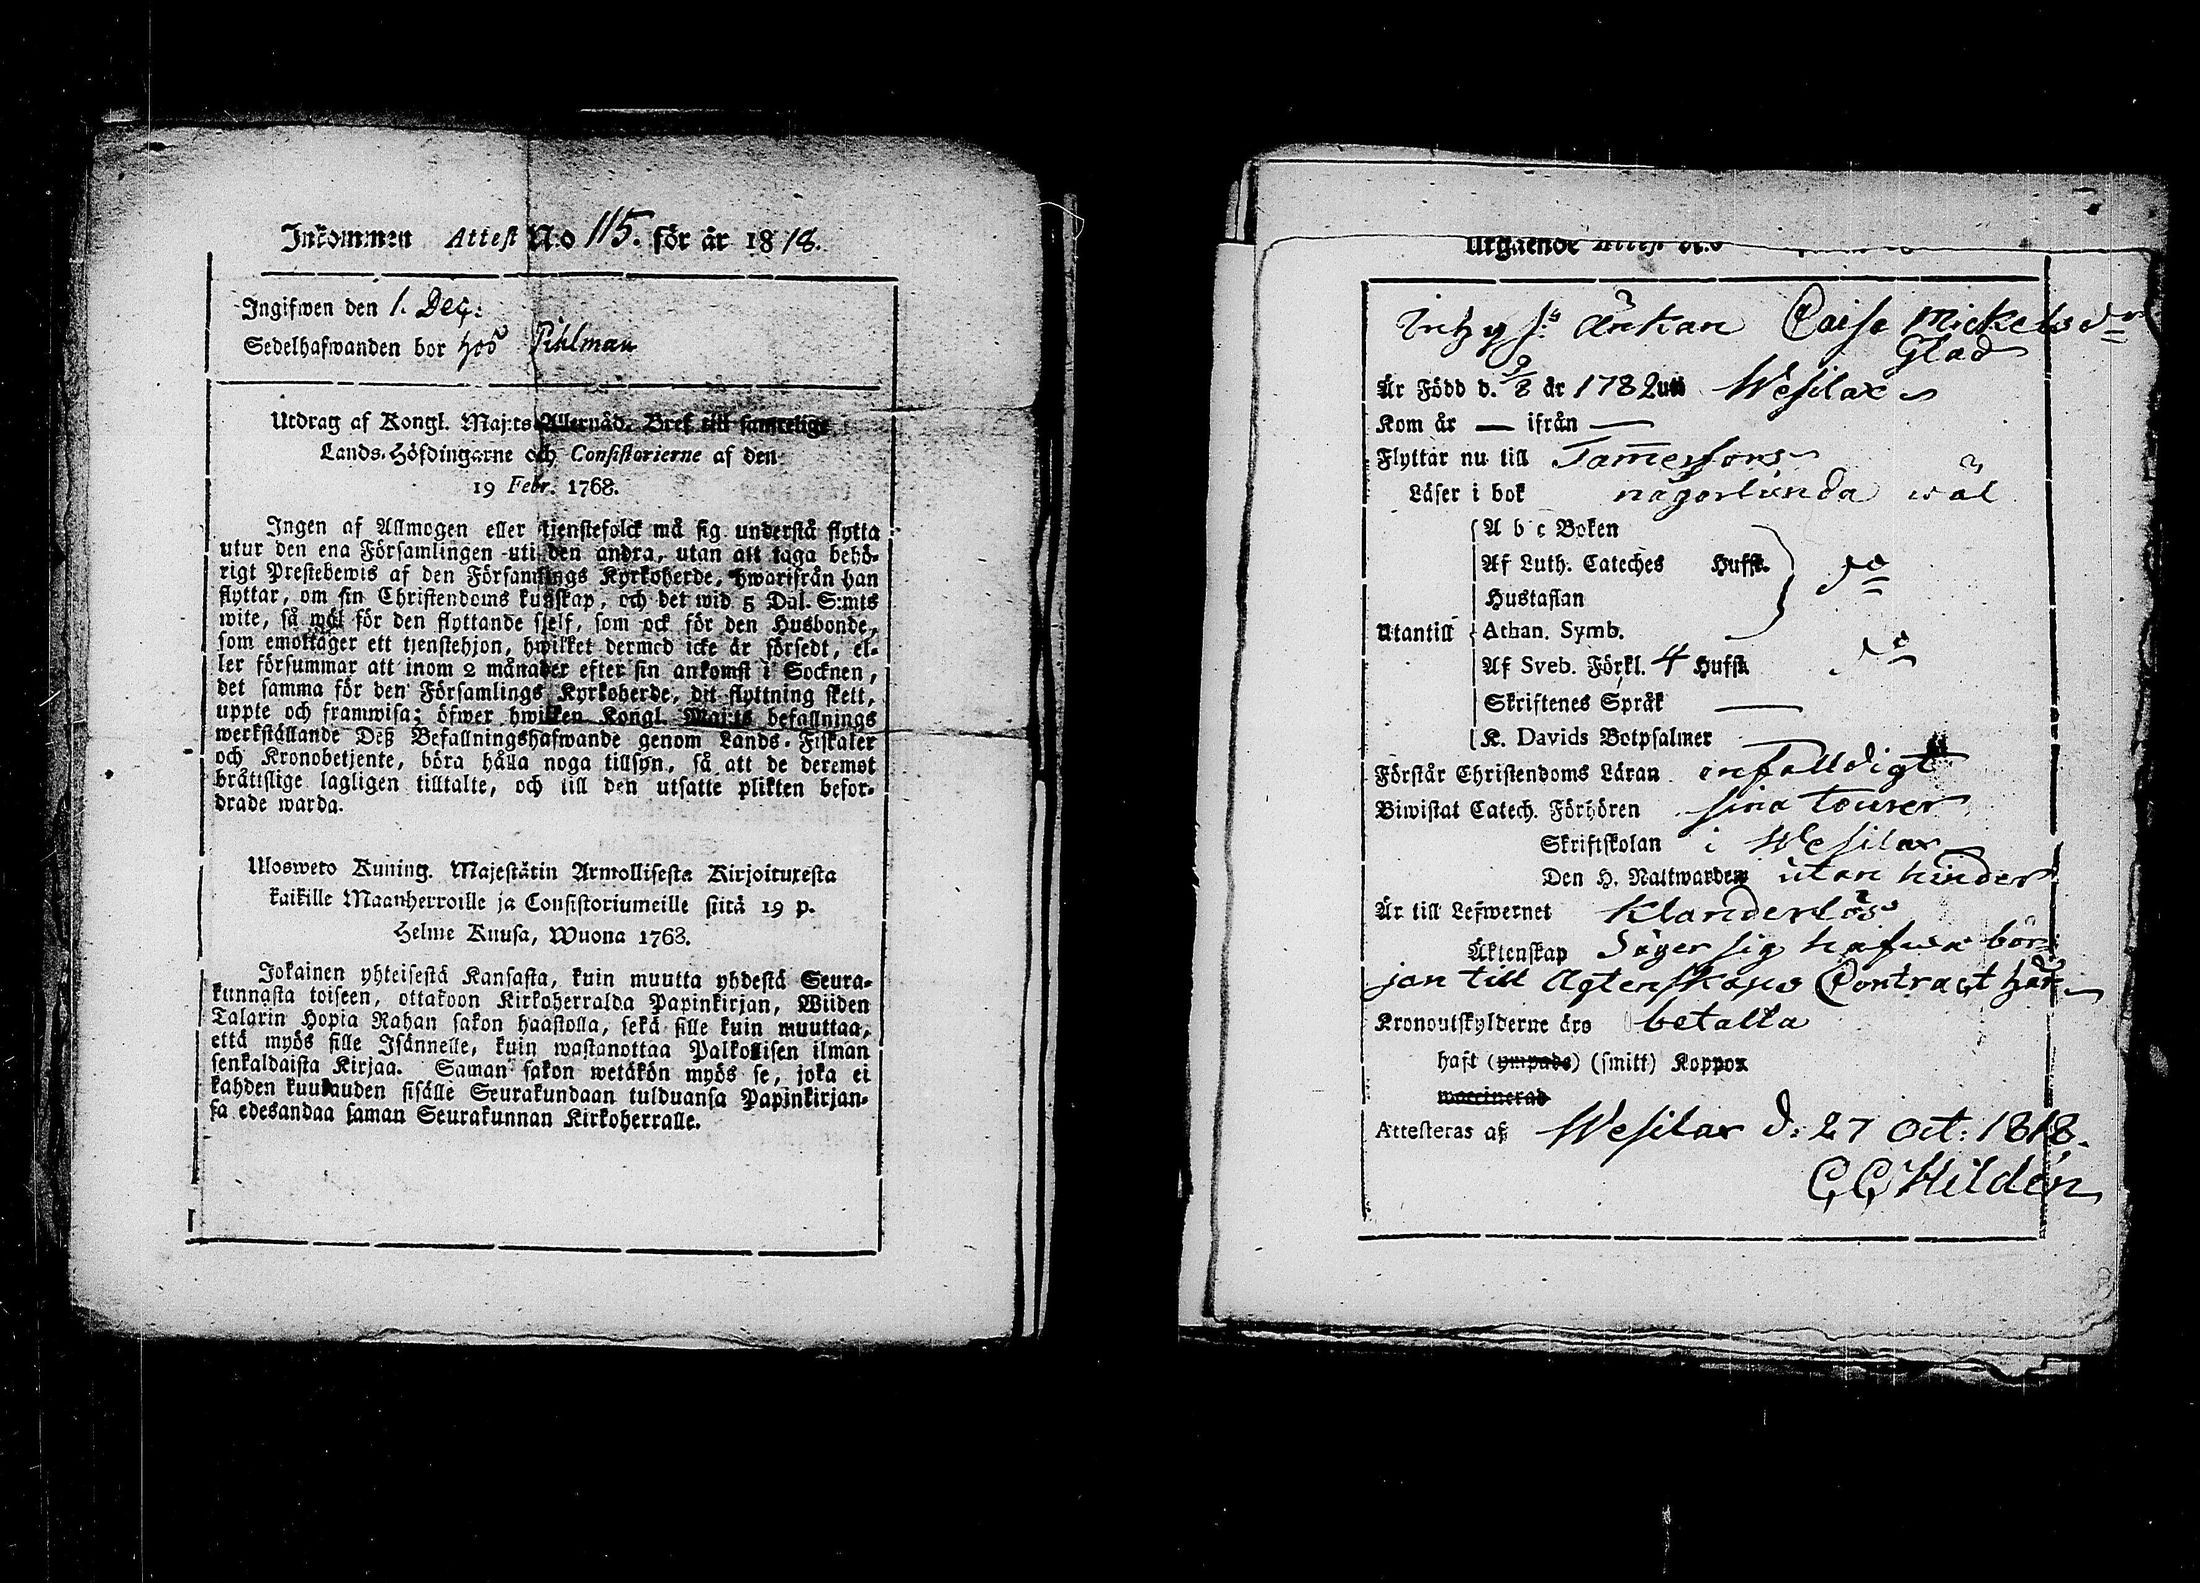 Inkommen Attest N:o 115. för år 1818.
Ingifwen den 1. Dec:
Sedelhafwanden bor hos Pihlman
Utdrag af Kongl. Maj:ts Allernåd. Bref till samtelige
Lands-Höfdingarne och Consistorierne af den
19 Febr. 1768.
Ingen af Allmogen eller tjenstefolck må sig understå flytta
utur den ena Församlingen uti den andra, utan att taga behö-
rigt Prestebewis af den Församlings Kyrkoherde, hwarifrån han
flyttar, om sin Christendoms kunskap, och det wid 5 Dal. S:mts
wite, så wäl för den flyttande sjelf, som ock för den Husbonde,
som emottager ett tjenstehjon, hwilket dermed icke är försedt, el-
ler försummar att inom 2 månader efter sin ankomst i Socknen,
det samma för den Församlings Kyrkoherde, dit flyttning skett,
uppte och framwisa; öfwer hwilken Kongl. Maj:ts befallnings
werkställande Deß Befallningshafwande genom Lands-Fiskaler
och Kronobetjente, böra hålla noga tillsyn, så att de deremot
bråttslige lagligen tilltalte, och till den utsatte plikten befor-
drade warda.
Ulosweto Kuning. Majestätin Armollisesta Kirjoituxesta
kaikille Maanherroille ja Consistoriumeille siitä 19 p.
Helme Kuusa, Wuona 1768.
Jokainen yhteisestä Kansasta, kuin muutta yhdestä Seura-
kunnasta toiseen, ottakoon Kirkoherralda Papinkirjan, Wiiden
Talarin Hopia Rahan sakon haastolla, sekä sille kuin muuttaa,
että myös sille Isännelle, kuin wastanottaa Palkollisen ilman
senkaldaista Kirjaa. Saman sakon wetäkön myös se, joka ei
kahden kuukauden sisälle Seurakundaan tulduansa Papinkirjan-
sa edesandaa saman Seurakunnan Kirkoherralle.
Utgående Attest N:o
Enkan Caisa Mickelsdr
Glad
Är Född d. 9/8 år 1782 uti Wesilax
Kom år — ifrån —
Flyttar nu till Tamerfors
Läser i bok någorlunda wäl
A b c Boken
Af Luth. Cateches Hufst. do
Hustaflan
Utantill Athan. Symb.
Af Sveb. Förkl. 4 Hufst. do
Skriftenes Språk —
K. Davids Botpsalmer
Förstår Christendoms Läran enfalldigt
Biwistat Catech. Förhören sina tourer
Skriftskolan i Wesilax
Den H. Nattwarden utan hinder
Är till Lefwernet Klanderlös
Äktenskap Säger sig hafwa bör-
jan till Ägtenskaps Contract här
Kronoutskylderne äro betalta
haft (ympade) (smitt) Koppor
waccinerad
Attesteras af Wesilax d. 27 Oct: 1818.
C C Hildén